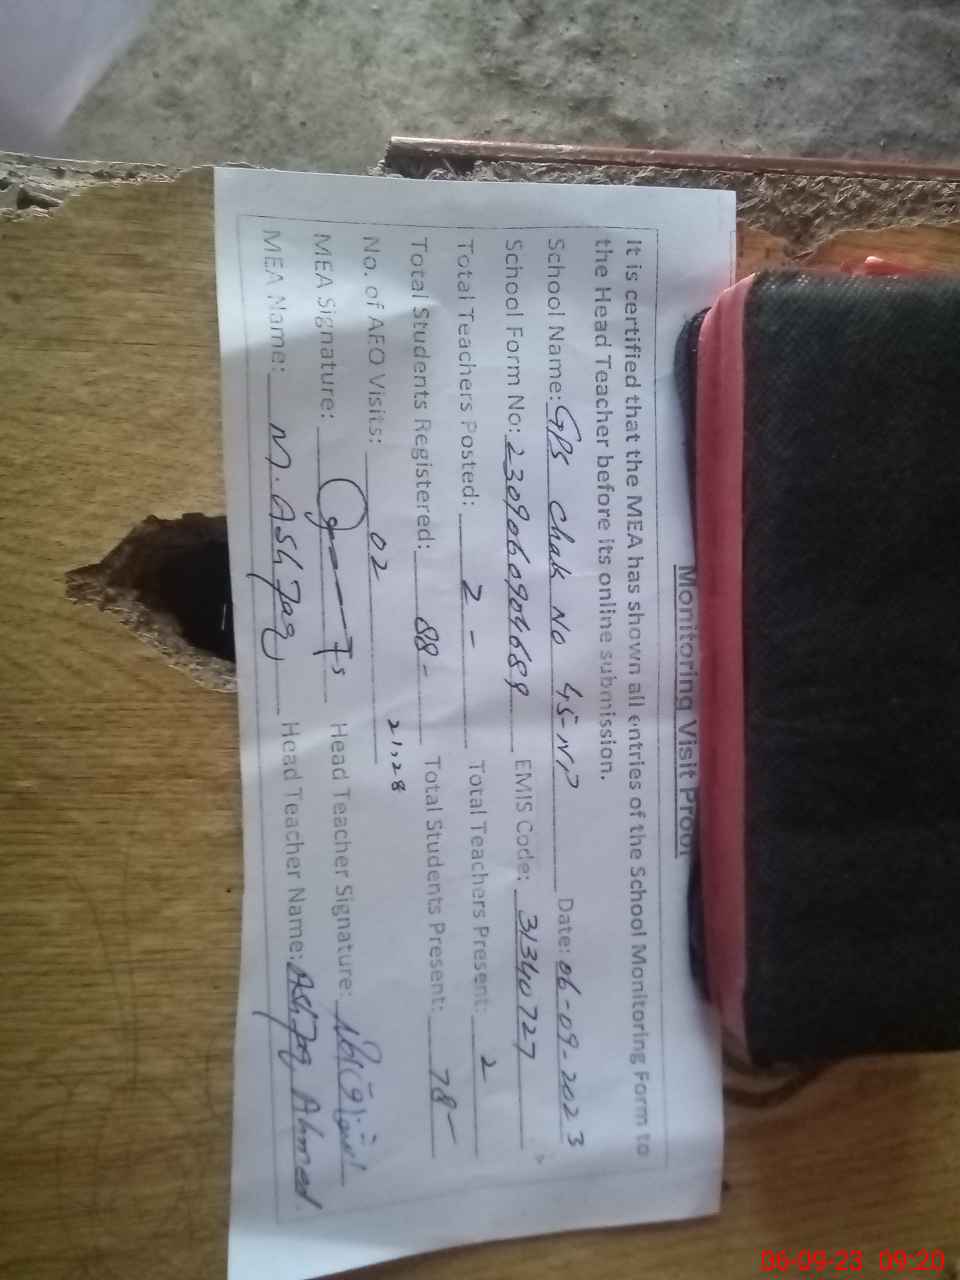 Monitoring Visit Proof
It is certified that the MEA has shown all entries of the School Monitoring Form to
the Head Teacher before its online submission.
School Name: GPS Chak No 45-NP Date: 06-09-2023
School Form No: 2309060904689 EMIS Code: 31340727
Total Teachers Posted: 2 - Total Teachers Present: 2
Total Students Registered: 88- Total Students Present: 78-
No. of AEO Visits: 02 21,28
MEA Signature: Head Teacher Signature:
MEA Name: M. Ashfaq Head Teacher Name: Ashfaq Ahmed
06-09-23 09:20